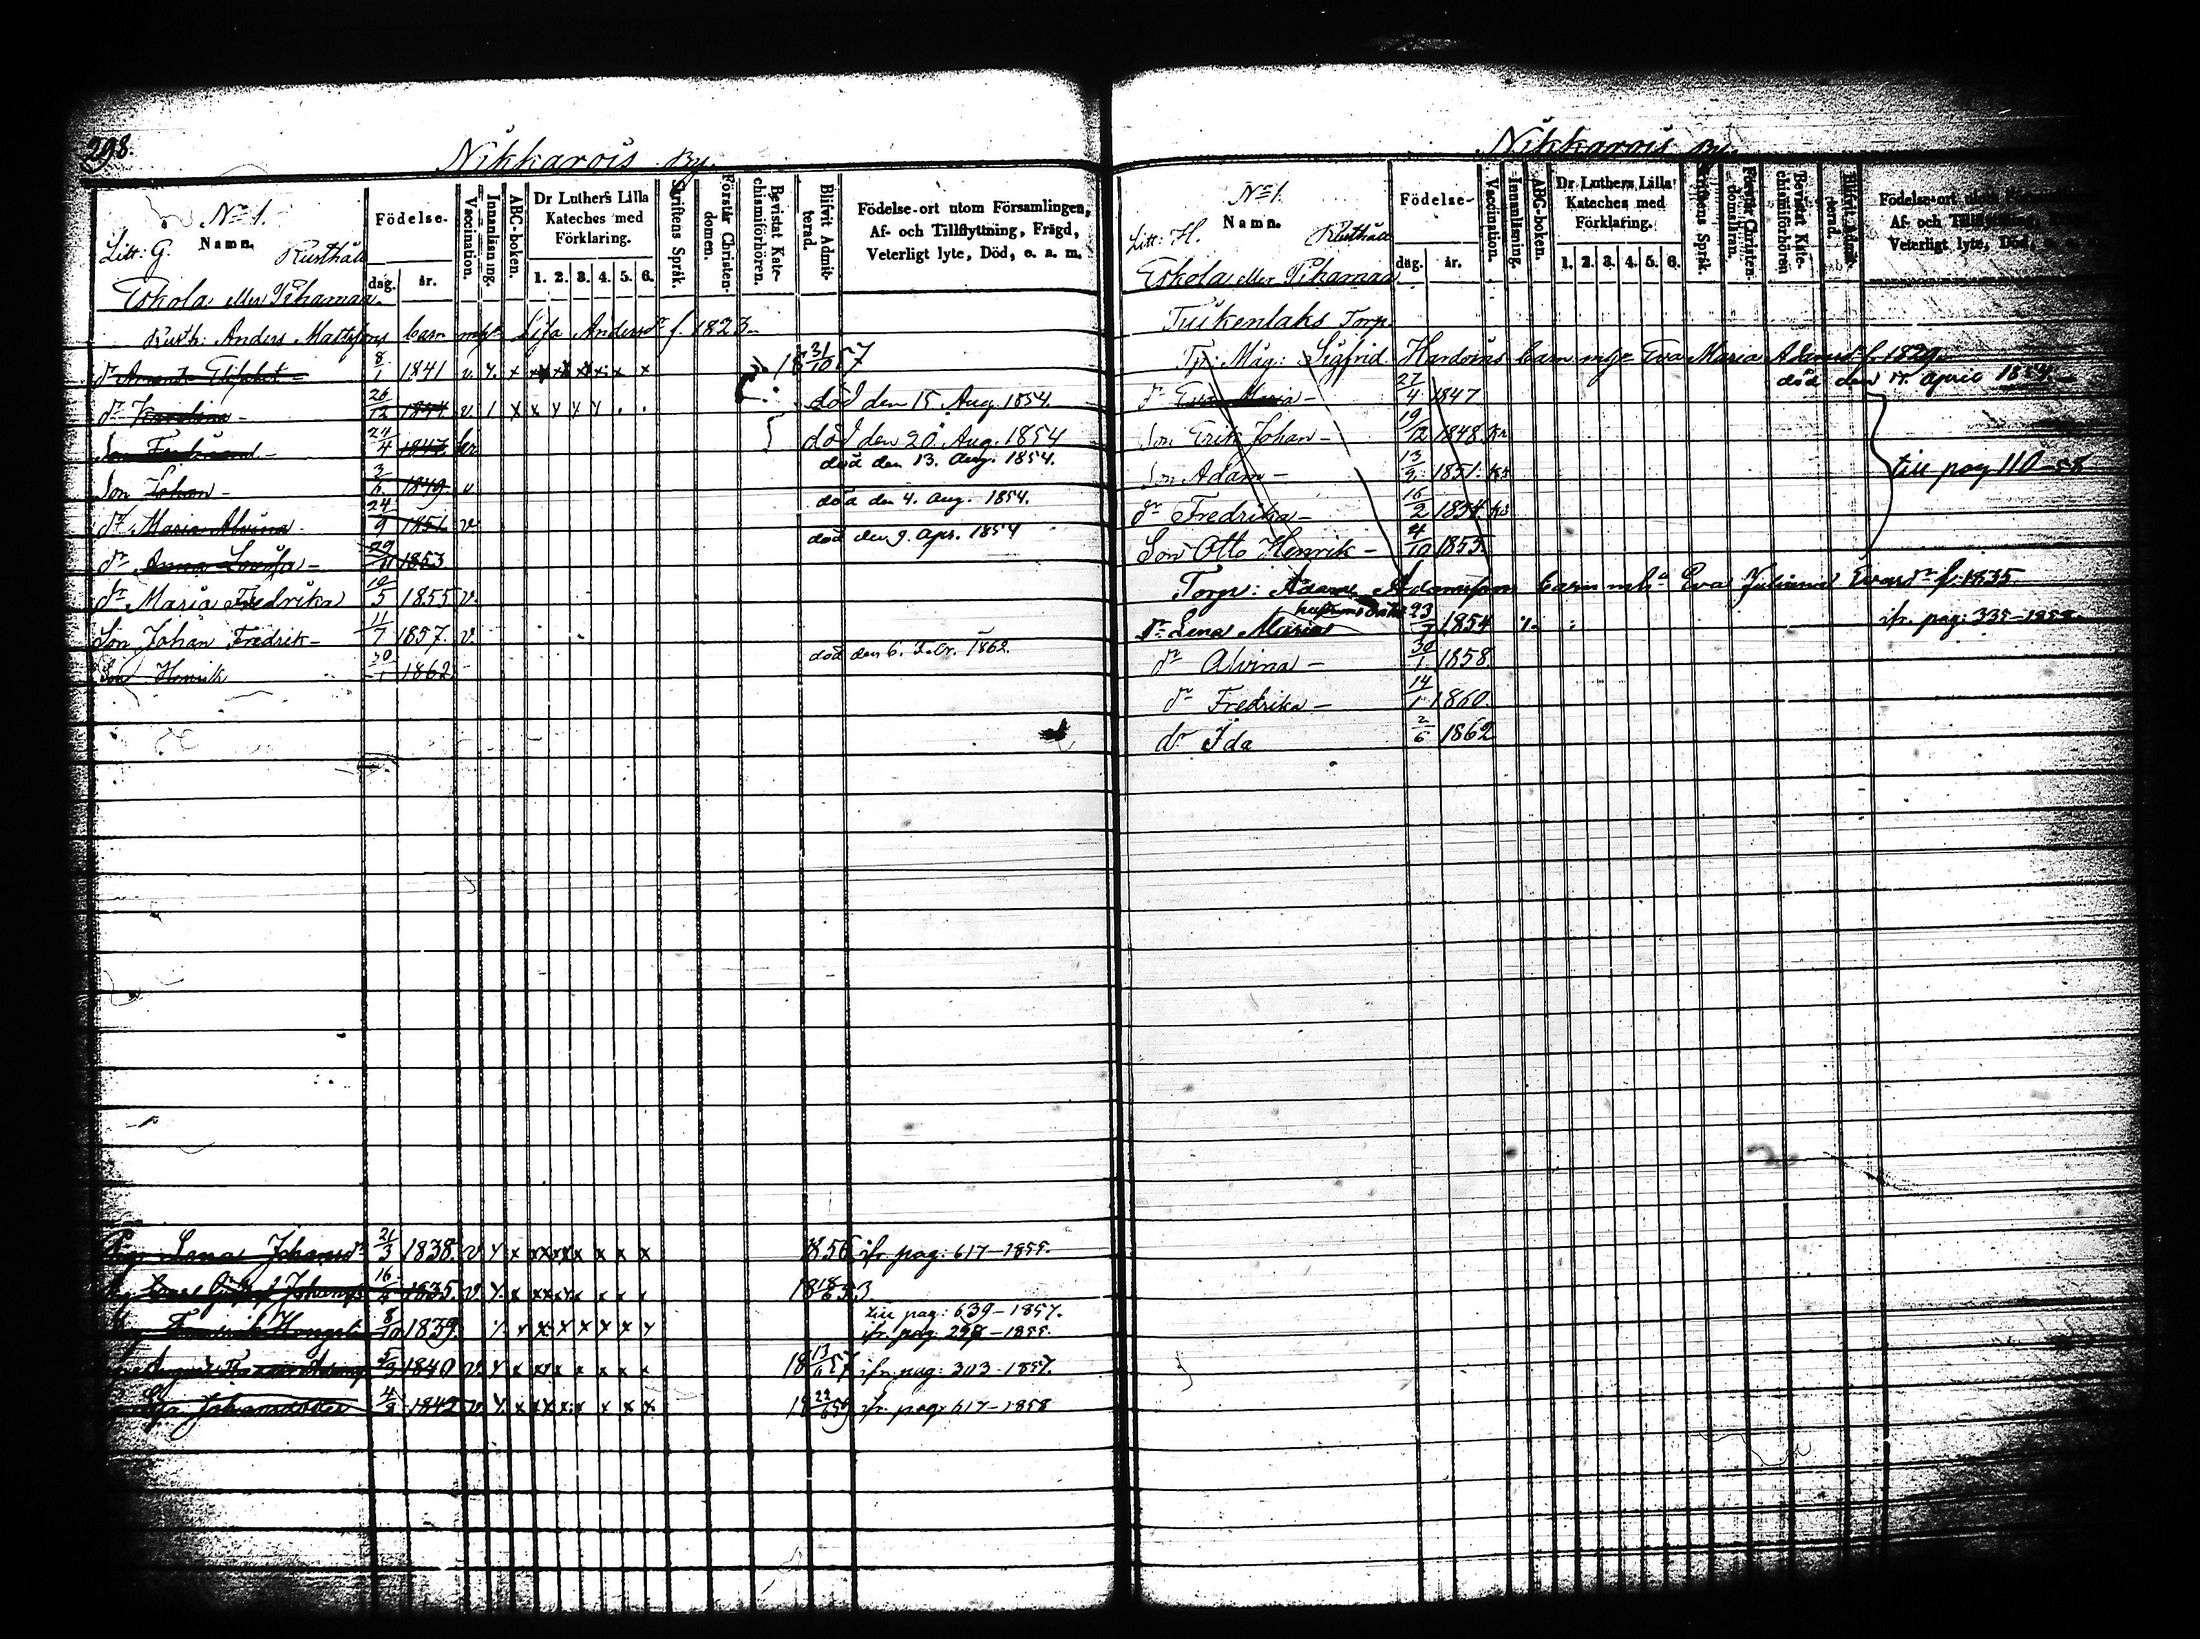 298.
Nikkarois By.
No 1.
Litt: G. Namn. Rusthåll
Födelse-
dag. år.
Vaccination.
Innanläsning.
ABC-boken.
Dr Luthers Lilla Kateches med Förklaring.
1. 2. 3. 4. 5. 6.
Skriftens Språk.
Förstår Christendomen.
Bevistat Katechismiförhören.
Blifvit Admitterad.
Födelse-ort utom Församlingen,
Af- och Tillflyttning, Frägd,
Veterligt lyte, Död, o. a. m.
Eskola eller Pihamaa.
Rusth. Anders Mattssons barn m. Lisa Andersdr f. 1823
dr 8/1 1841 v. x x x x x x x 18 31/10 57
dr Karolina 26/12 1844 v. död den 15 Aug. 1854.
Son Ferdinand 24/4 1847 död den 20 Aug. 1854
Son Johan 3/ 1849 v död den 13. Aug. 1854.
dr Maria Alvina 24/9 1851 v. död den 4. Aug. 1854.
dr Anna Lovisa 29/11 1853 död den 9. Apr. 1854
dr Maria Fredrika 10/5 1855 v.
Son Johan Fredrik 11/7 1857. v.
Son Henrik 30/1 1862 död den 6. Febr. 1862.
Lena Johansdr 21/3 1838. v. x x x x x x x 1856 ifr. pag: 617-1855.
Gustaf Johansson 16/ 1835. v. x x x x x x 18 18/6 53
till pag: 639-1857.
Fredrik 8/10 1839. x x x x x x ifr. pag. 298-1855.
August 5/3 1840 v. x x x x x x 18 13/6 57 ifr. pag: 303-1857.
Lisa Johansdotter 4/8 1842 v. x x x x x x 18 22/6 59 ifr. pag. 617-1858
Nikkarois By.
No 1.
Litt: H. Namn. Rusthåll
Födelse-
dag. år.
Vaccination.
Innanläsning.
ABC-boken.
Dr Luthers Lilla Kateches med Förklaring.
1. 2. 3. 4. 5. 6.
Skriftens Språk.
Förstår Christendomsläran.
Bevistat Katechismiförhören
Blifvit Admitterad.
Födelse-ort utom
Af- och Tillflyttning,
Veterligt lyte, Död,
Eskola eller Pihamaa.
Tuikenlaks Torp.
Tp: Måg: Sigfrid Hardoins barn m. Eva Maria Adamsdr f. 1829.
dr Eva Maria 27/4 1847 död den 17. April 1854.
Son Erik Johan 19/12 1848.
Son Adam 13/9 1851.
dr Fredrika 16/2 1854.
Son Otto Henrik 4/10 1855.
till pag 110-58
Torp: Adam Adamssons barn m. Eva Juliana Evasdr f. 1835.
dr Lena Maria 23/ 1854 ifr. pag: 335-
dr Alvina 30/1 1858
dr Fredrika 14/1 1860.
dr Ida 2/6 1862